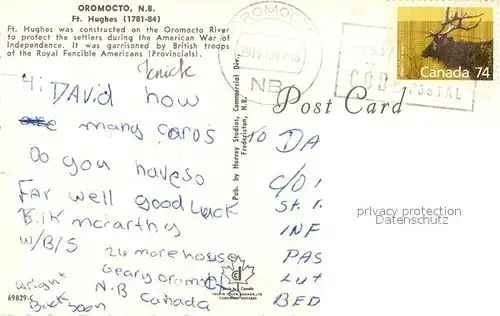 OROMOCTO, N.B.
Ft. Hughes (1781-84)
Ft. Hughes was constructed on the Oromocto River
to protect the settlers during the American War of
Independence. It was garrisoned by British troops
of the Royal Fencible Americans (Provincials).
Hi DAVID how
many cards
Do you have so
FAr well good luck
BilK mcCarthy
W/B/S
26 morehouse
Geary oromocto
N.B Canada
Wright
Back Soon
69829-C
Pub. by Harvey Studios, Commercial Div.,
Fredericton, N.B.
OROMOCTO
NB
CODE POSTAL
Canada 74
Post Card
TO DA
C/O
St.
INF
PAS
Lut
BED
Made in Canada
privacy protection
Datenschutz